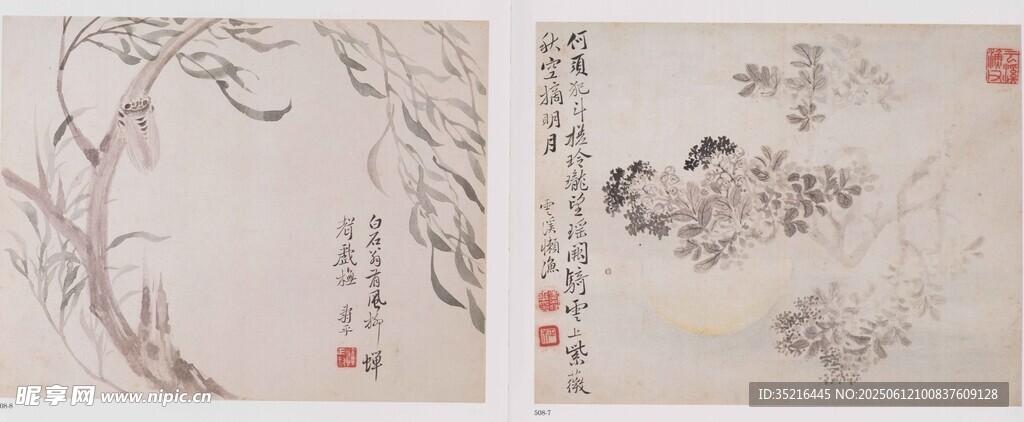 白石翁有風柳蟬
聲戲橅
壽平
何頭犯斗槎玲瓏望瑤闕騎雲上紫薇
秋空摘明月
雲溪懶漁
08-8
508-7
昵享网 www.nipic.cn
ID:35216445 NO:20250612100837609128